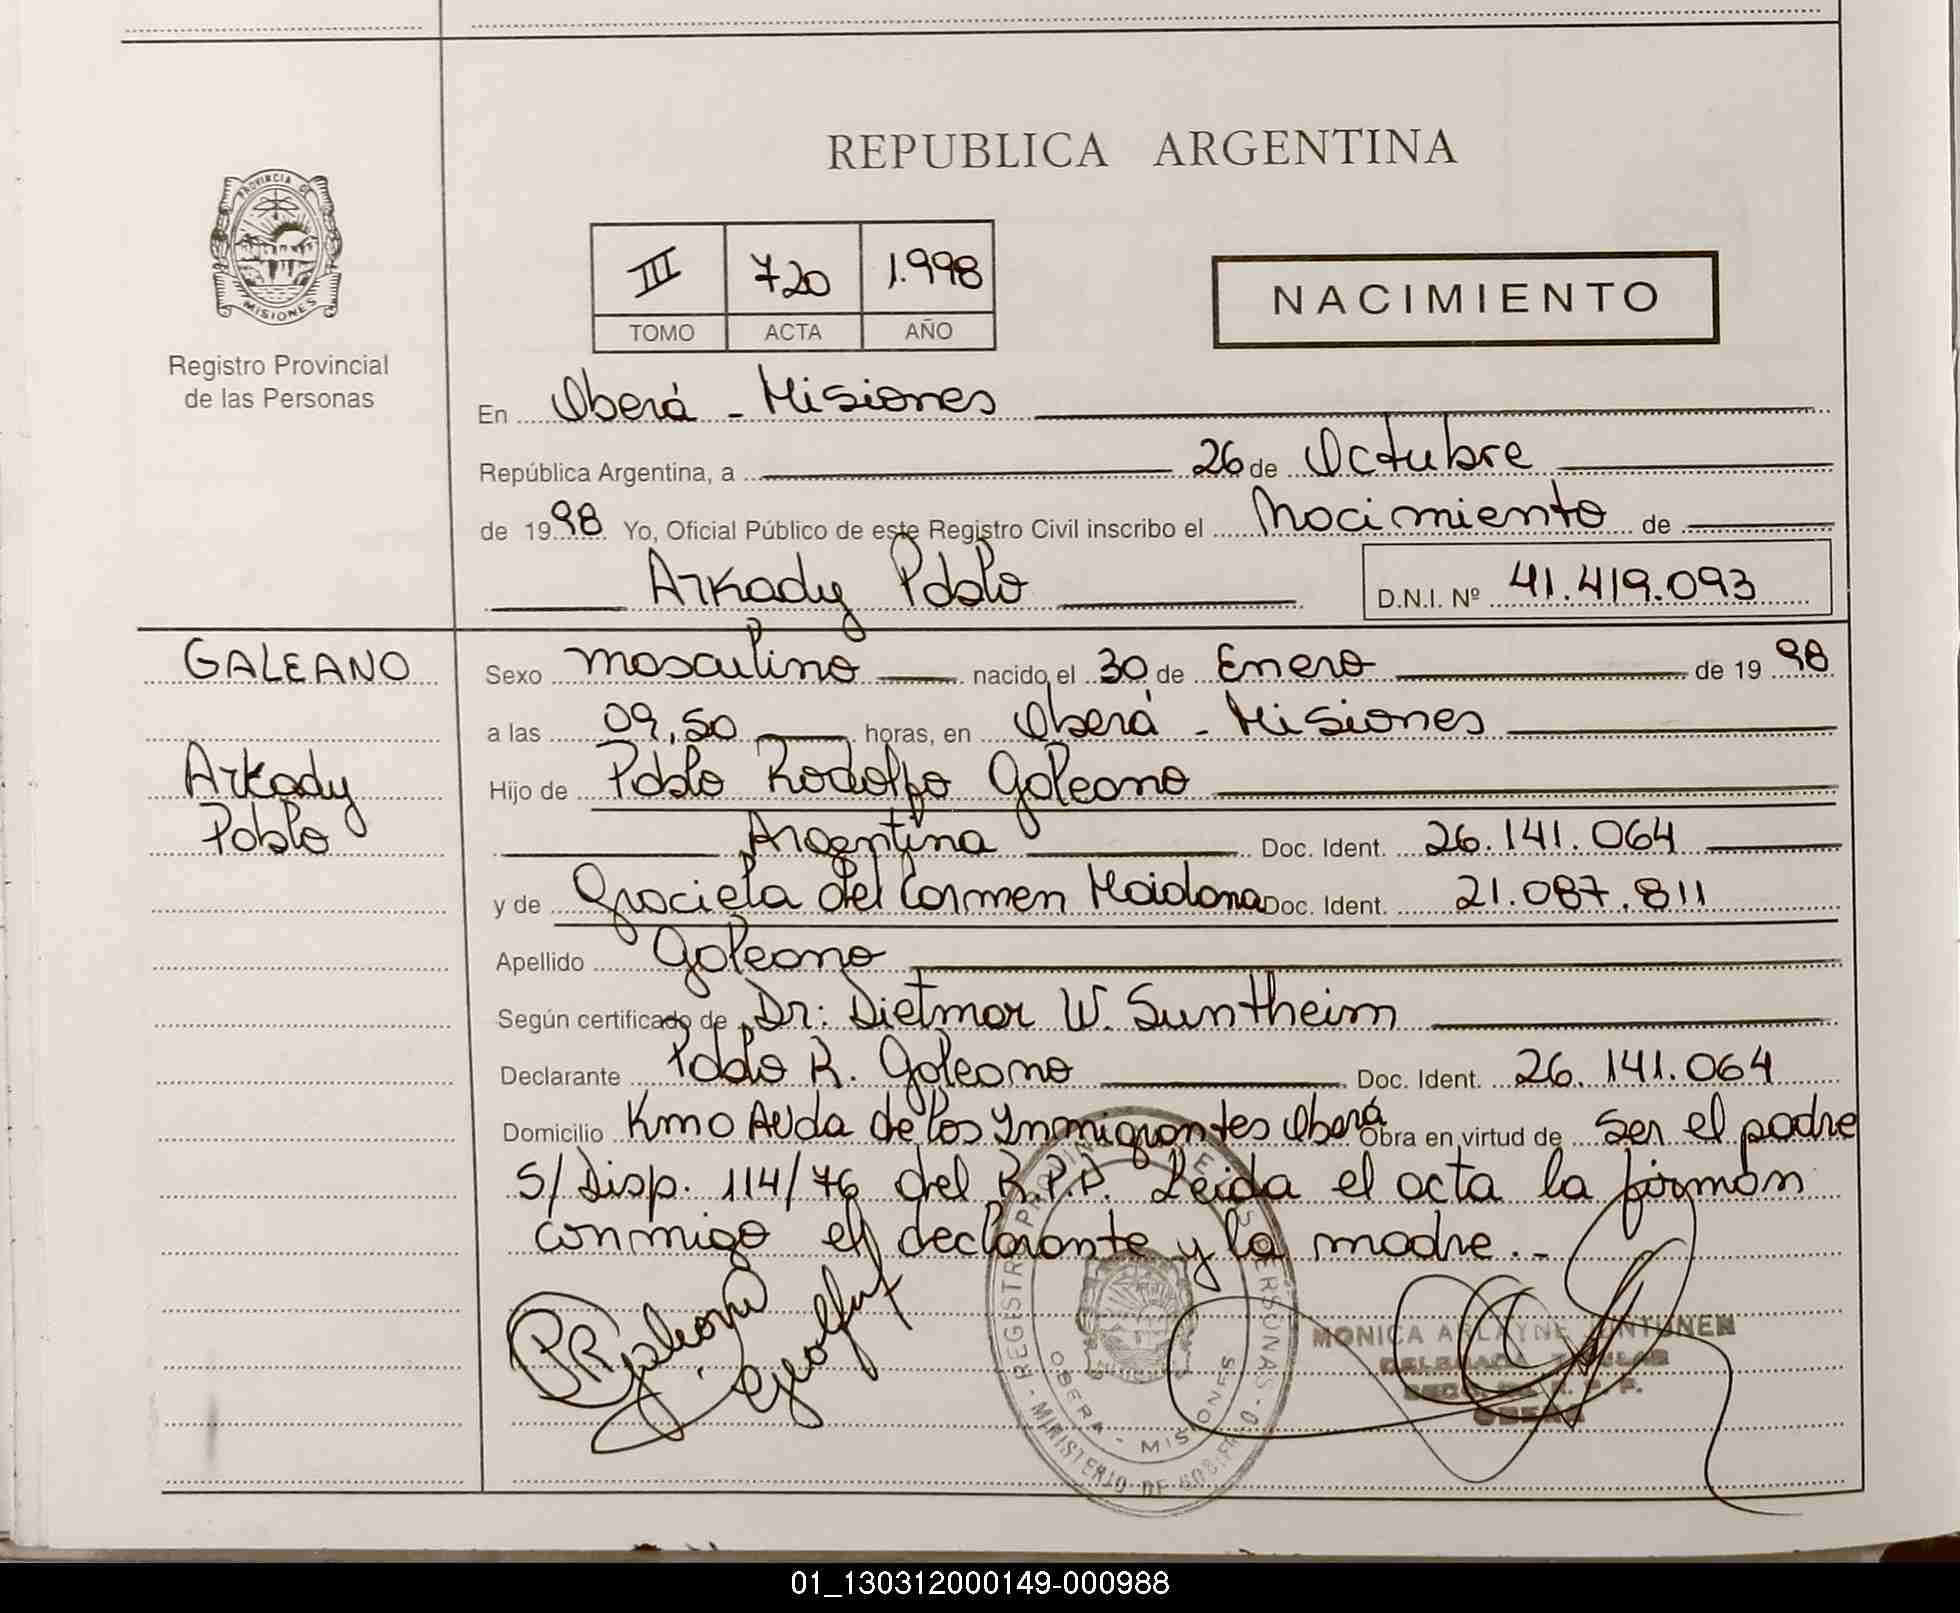 REPUBLICA ARGENTINA
PROVINCIA DE
MISIONES
Registro Provincial
de las Personas
III 720 1.998
TOMO ACTA AÑO
NACIMIENTO
En Oberá - Misiones
República Argentina, a 26 de Octubre
de 1998 Yo, Oficial Público de este Registro Civil inscribo el Nacimiento de
Arkady Pablo D.N.I. Nº 41.419.093
GALEANO
Arkady
Pablo
Sexo masculino nacido el 30 de Enero de 1998
a las 09,50 horas, en Oberá - Misiones
Hijo de Pablo Rodolfo Galeano
Argentina Doc. Ident. 26.141.064
y de Graciela del Carmen Maidana Doc. Ident. 21.087.811
Apellido Galeano
Según certificado de Dr: Dietmar W. Suntheim
Declarante Pablo R. Galeano Doc. Ident. 26.141.064
Domicilio Kmo Avda de los Ynmigrantes Oberá Obra en virtud de ser el padre
S/ Disp. 114/76 del R.P.P. Leida el acta la firman
conmigo el declarante y la madre.-
PRGaleano
REGISTRO PROVINCIAL DE LAS PERSONAS
MINISTERIO DE GOBIERNO
OBERA - MISIONES
MONICA
OBERA
01_130312000149-000988